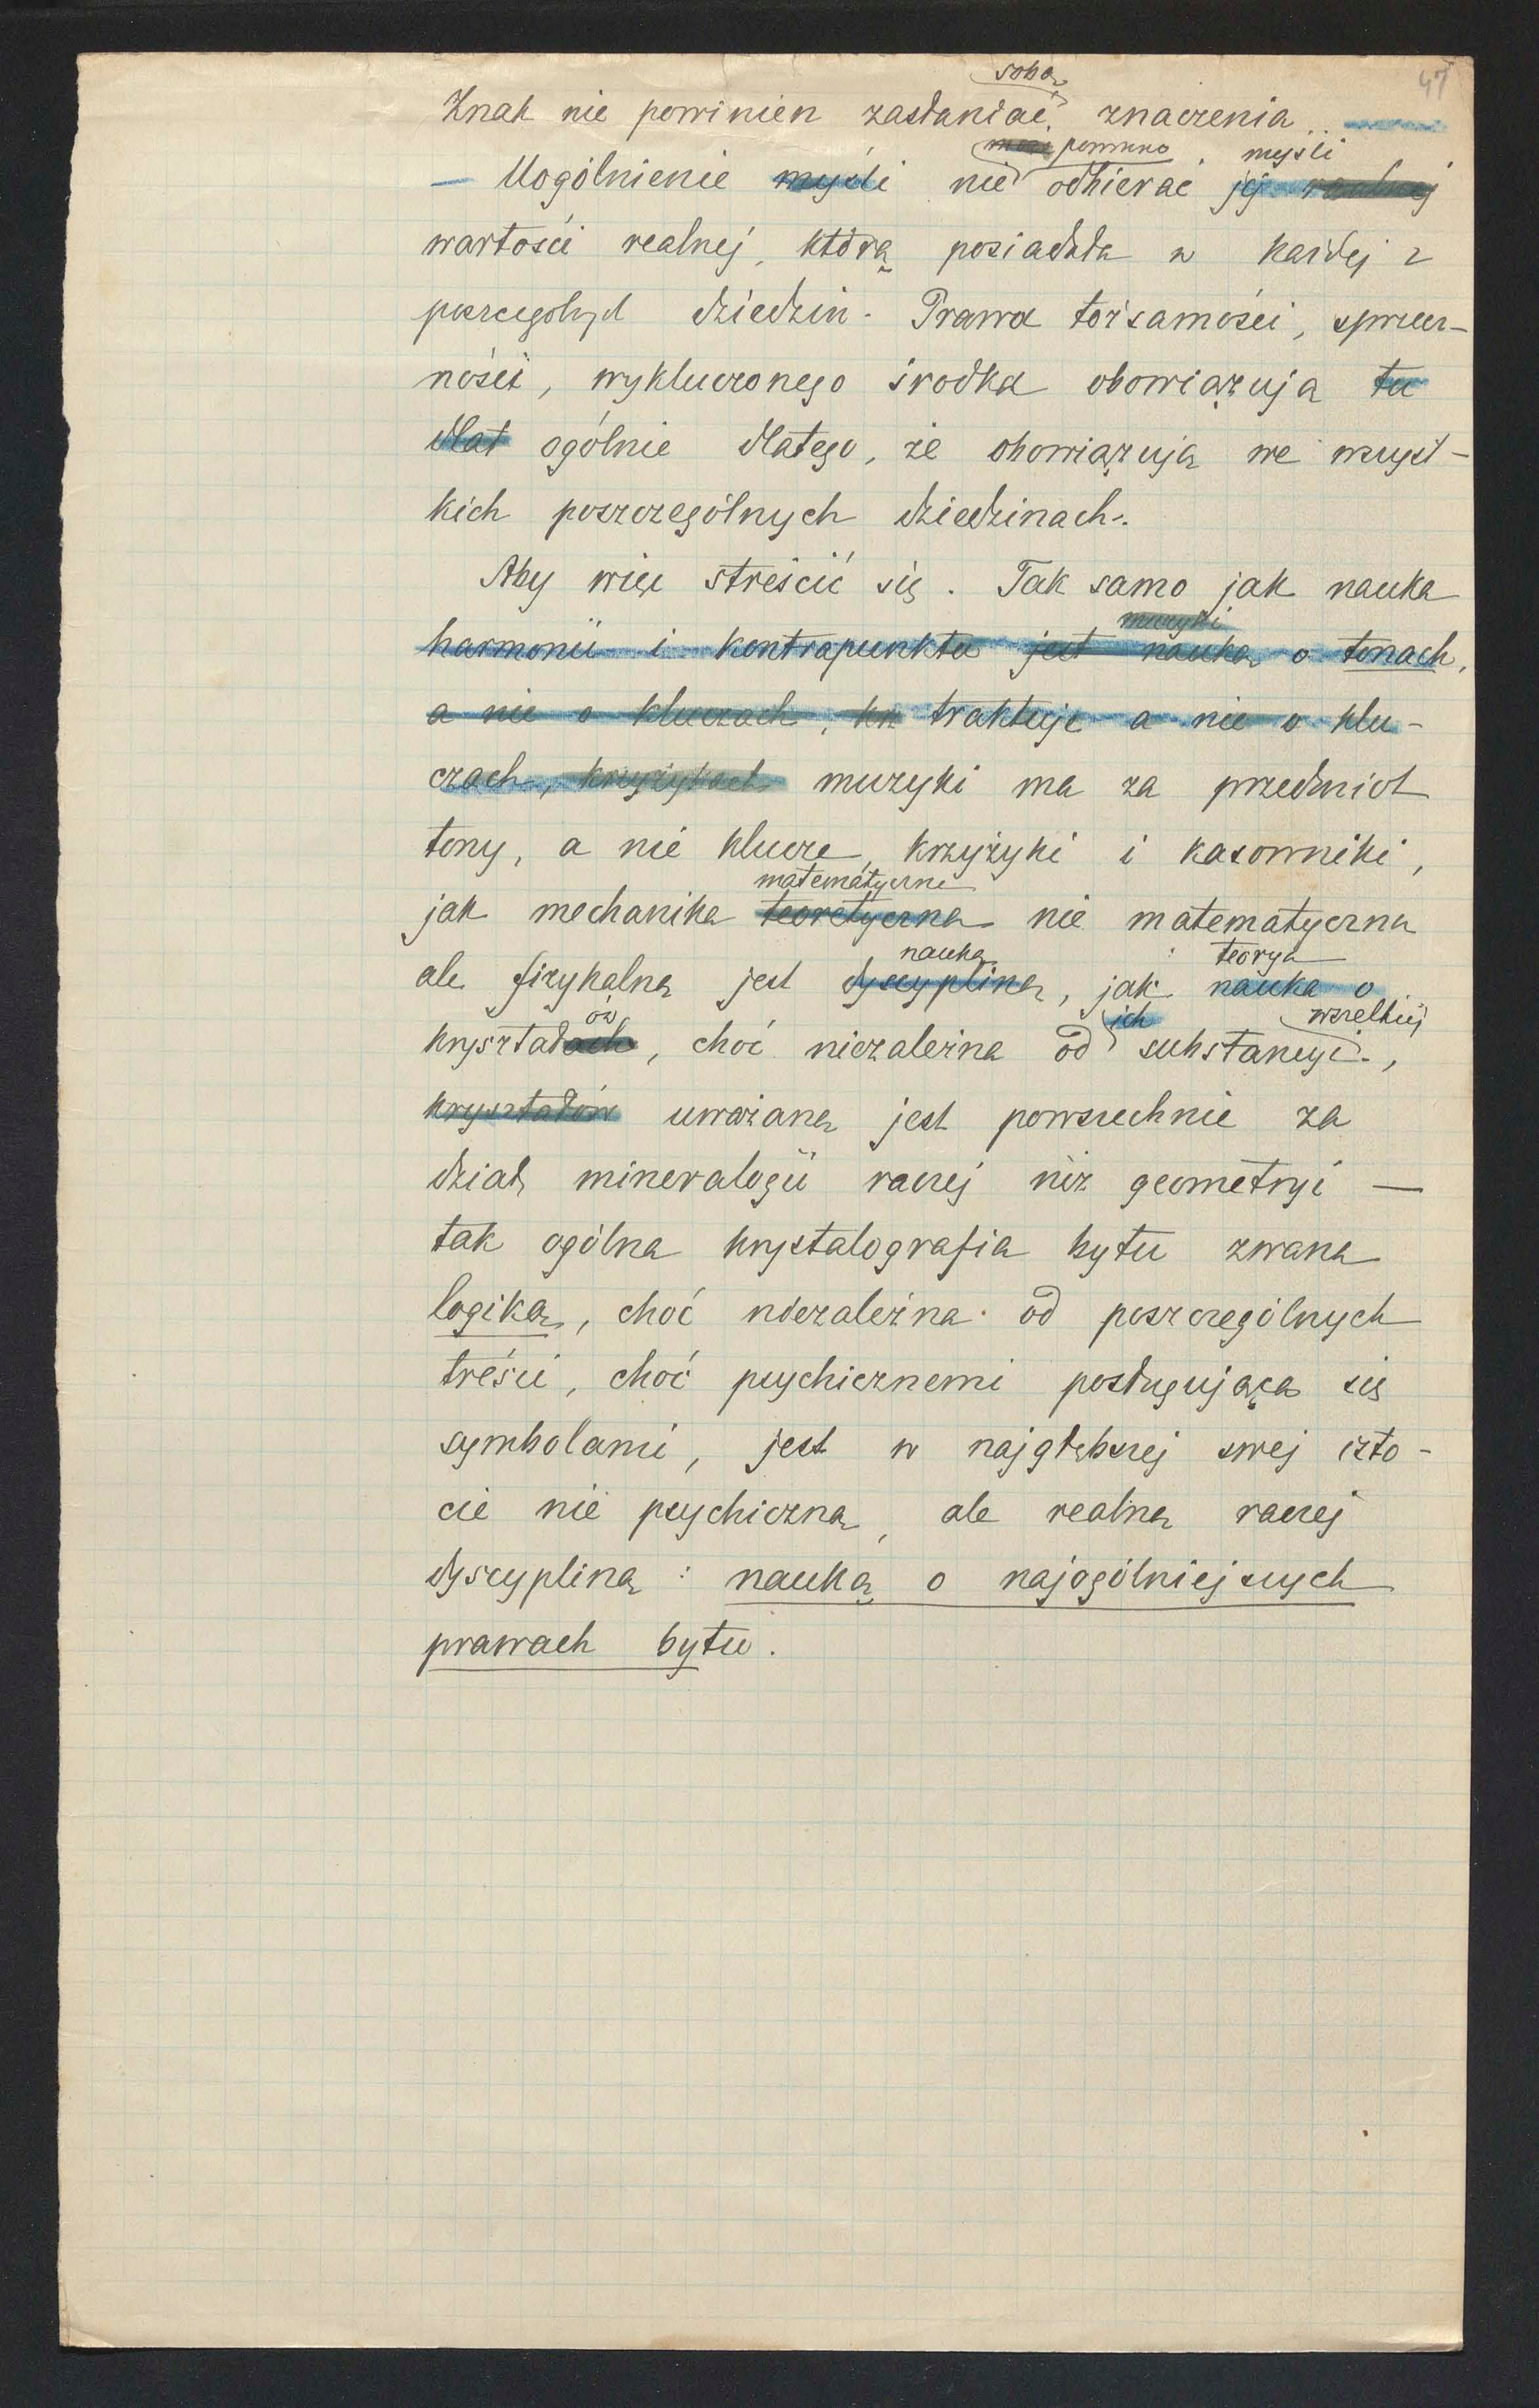 47
sobą
Znak nie powinien zasłaniać znaczenia
powinno myśli
— Uogólnienie myśli nie odbierać jej realnej
wartości realnej, którą posiadała w każdej z
poszczególnych dziedzin. Prawa tożsamości, sprzecz-
ności, wykluczonego środka obowiązują tu
dlat ogólnie dlatego, że obowiązują we wszyst-
kich poszczególnych dziedzinach.
Aby więc streścić się. Tak samo jak nauka
muzyki
harmonii i kontrapunktu jest nauką o tonach,
a nie o kluczach, traktuje a nie o klu-
czach, krzyżykach muzyki ma za przedmiot
tony, a nie klucze, krzyżyki i kasowniki,
matematyczne
jak mechanika teoretyczna nie matematyczną
nauką teorya
ale fizykalną jest dyscypliną, jak nauka o
ów ich wszelkiej
kryształach, choć niezależna od substancyi,
kryształów uważana jest powszechnie za
dział mineralogii raczej niż geometryi —
tak ogólna krystalografia bytu zwana
logiką, choć niezależna od poszczególnych
treści, choć psychicznemi posługująca się
symbolami, jest w najgłębszej swej isto-
cie nie psychiczną, ale realną raczej
dyscypliną: nauką o najogólniejszych
prawach bytu.